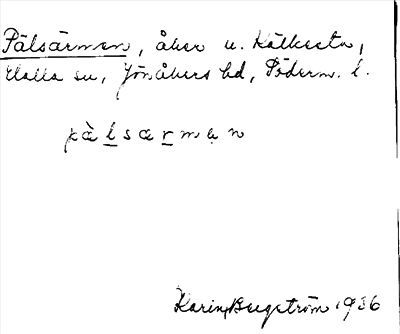 Pälsärmen, åker u. Kälkesta,
Halla sn, Jönåkers hd, Söderm. l.
pä̀lsærmən
Karin Bergström 1936